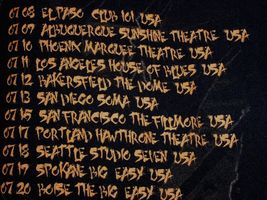 07 08 EL PASO CLUB 101 USA
07 09 ALBUQUERQUE SUNSHINE THEATRE USA
07 10 PHOENIX MARQUEE THEATRE USA
07 11 LOS ANGELES HOUSE OF BLUES USA
07 12 BAKERSFIELD THE DOME USA
07 13 SAN DIEGO SOMA USA
07 15 SAN FRANCISCO THE FILLMORE USA
07 17 PORTLAND HAWTHRONE THEATRE USA
07 18 SEATTLE STUDIO SEVEN USA
07 19 SPOKANE BIG EASY USA
07 20 BOISE THE BIG EASY USA